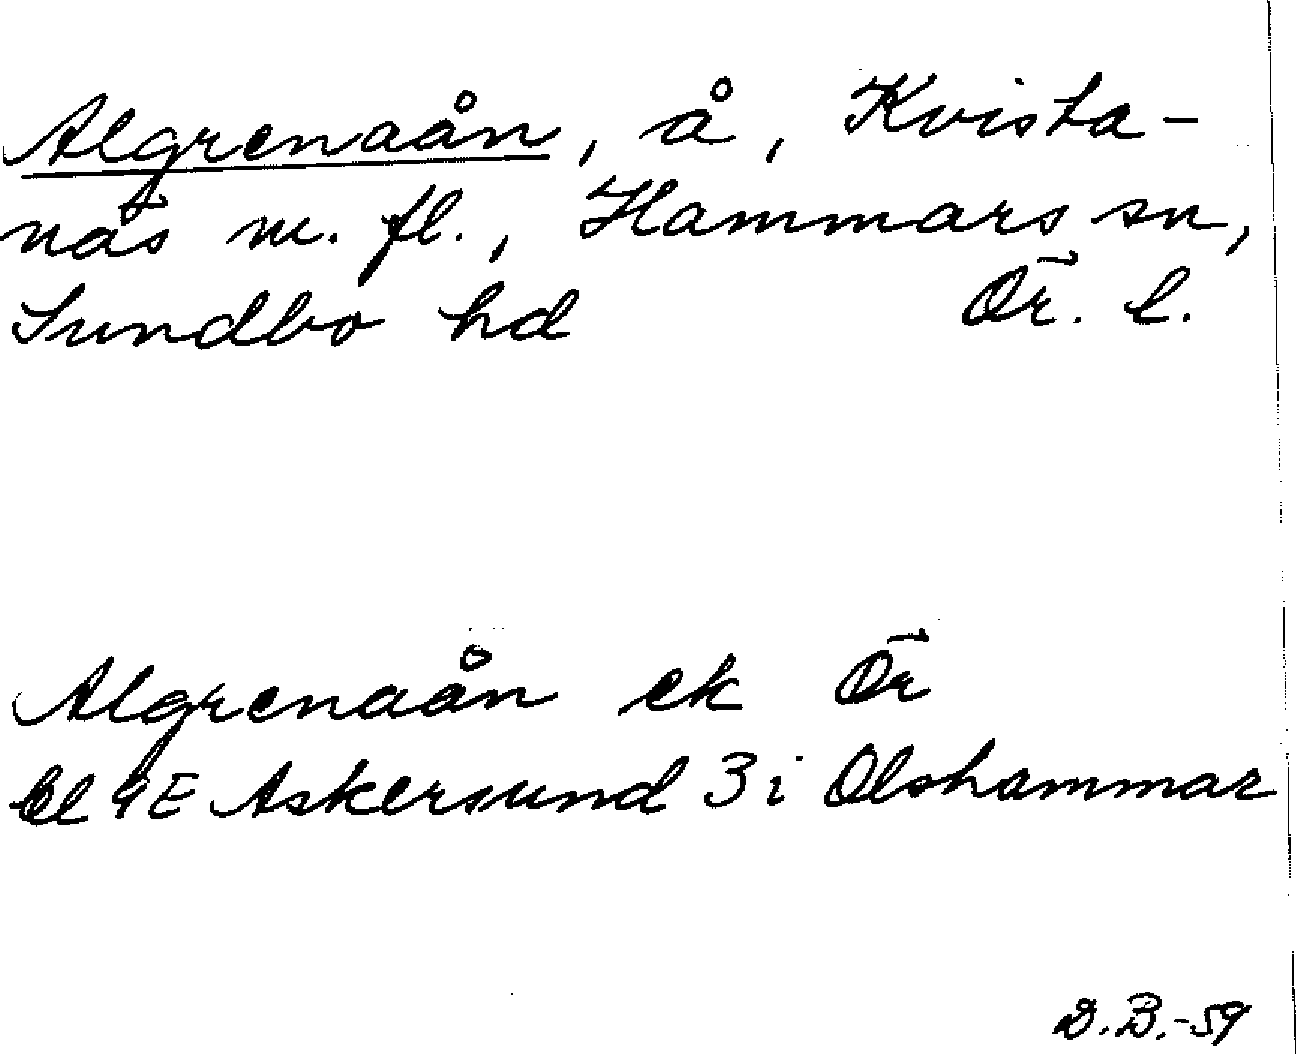 Algrenaån, å, Kvista-
näs m. fl., Hammars sn,
Sundbo hd Ör. l.
Algrenaån ek Ör
Bl 9E Askersund 3 i Olshammar
D.B.-59